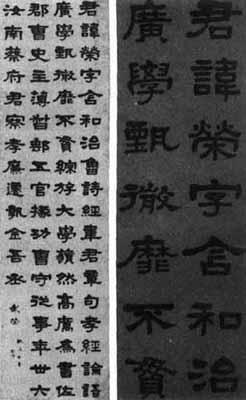 君諱榮字含和治
廣學甄微靡不貫
君諱榮字含和治魯詩經韋君章句孝經論語
廣學甄微靡不貫綜斿大學藐然高厲為書佐
郡曹史主薄督郵五官掾功曹守從事年卅六
汝南蔡府君察孝廉遷執金吾丞